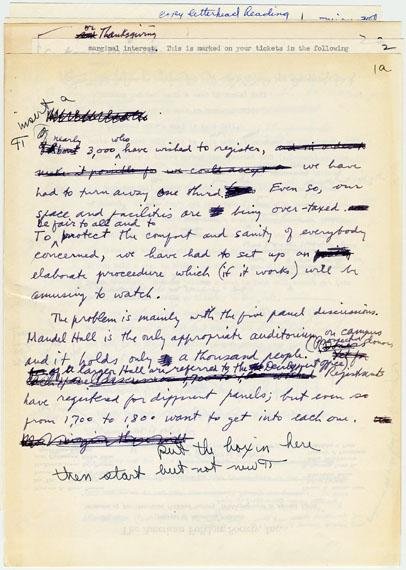 copy letterhead heading
or Thanksgiving
marginal interest. This is marked on your tickets in the following
2
1a
insert a
nearly who
3,000 have wished to register,
we have
had to turn away one third. Even so, our
space and facilities are being over-taxed
be fair to all and to
To protect the comfort and sanity of everybody
concerned, we have had to set up an
elaborate proceedure which (if it works) will be
amusing to watch.
The problem is mainly with the five panel discussions.
Mandel Hall is the only appropriate auditorium on campus
and it holds only a thousand people. (
donors
of a larger Hall are referred to the Development Office)
Registrants
have registered for different panels; but even so
from 1,700 to 1,800 want to get into each one.
put the box in here
then start but not new ¶
The American Folklore Society, Inc.